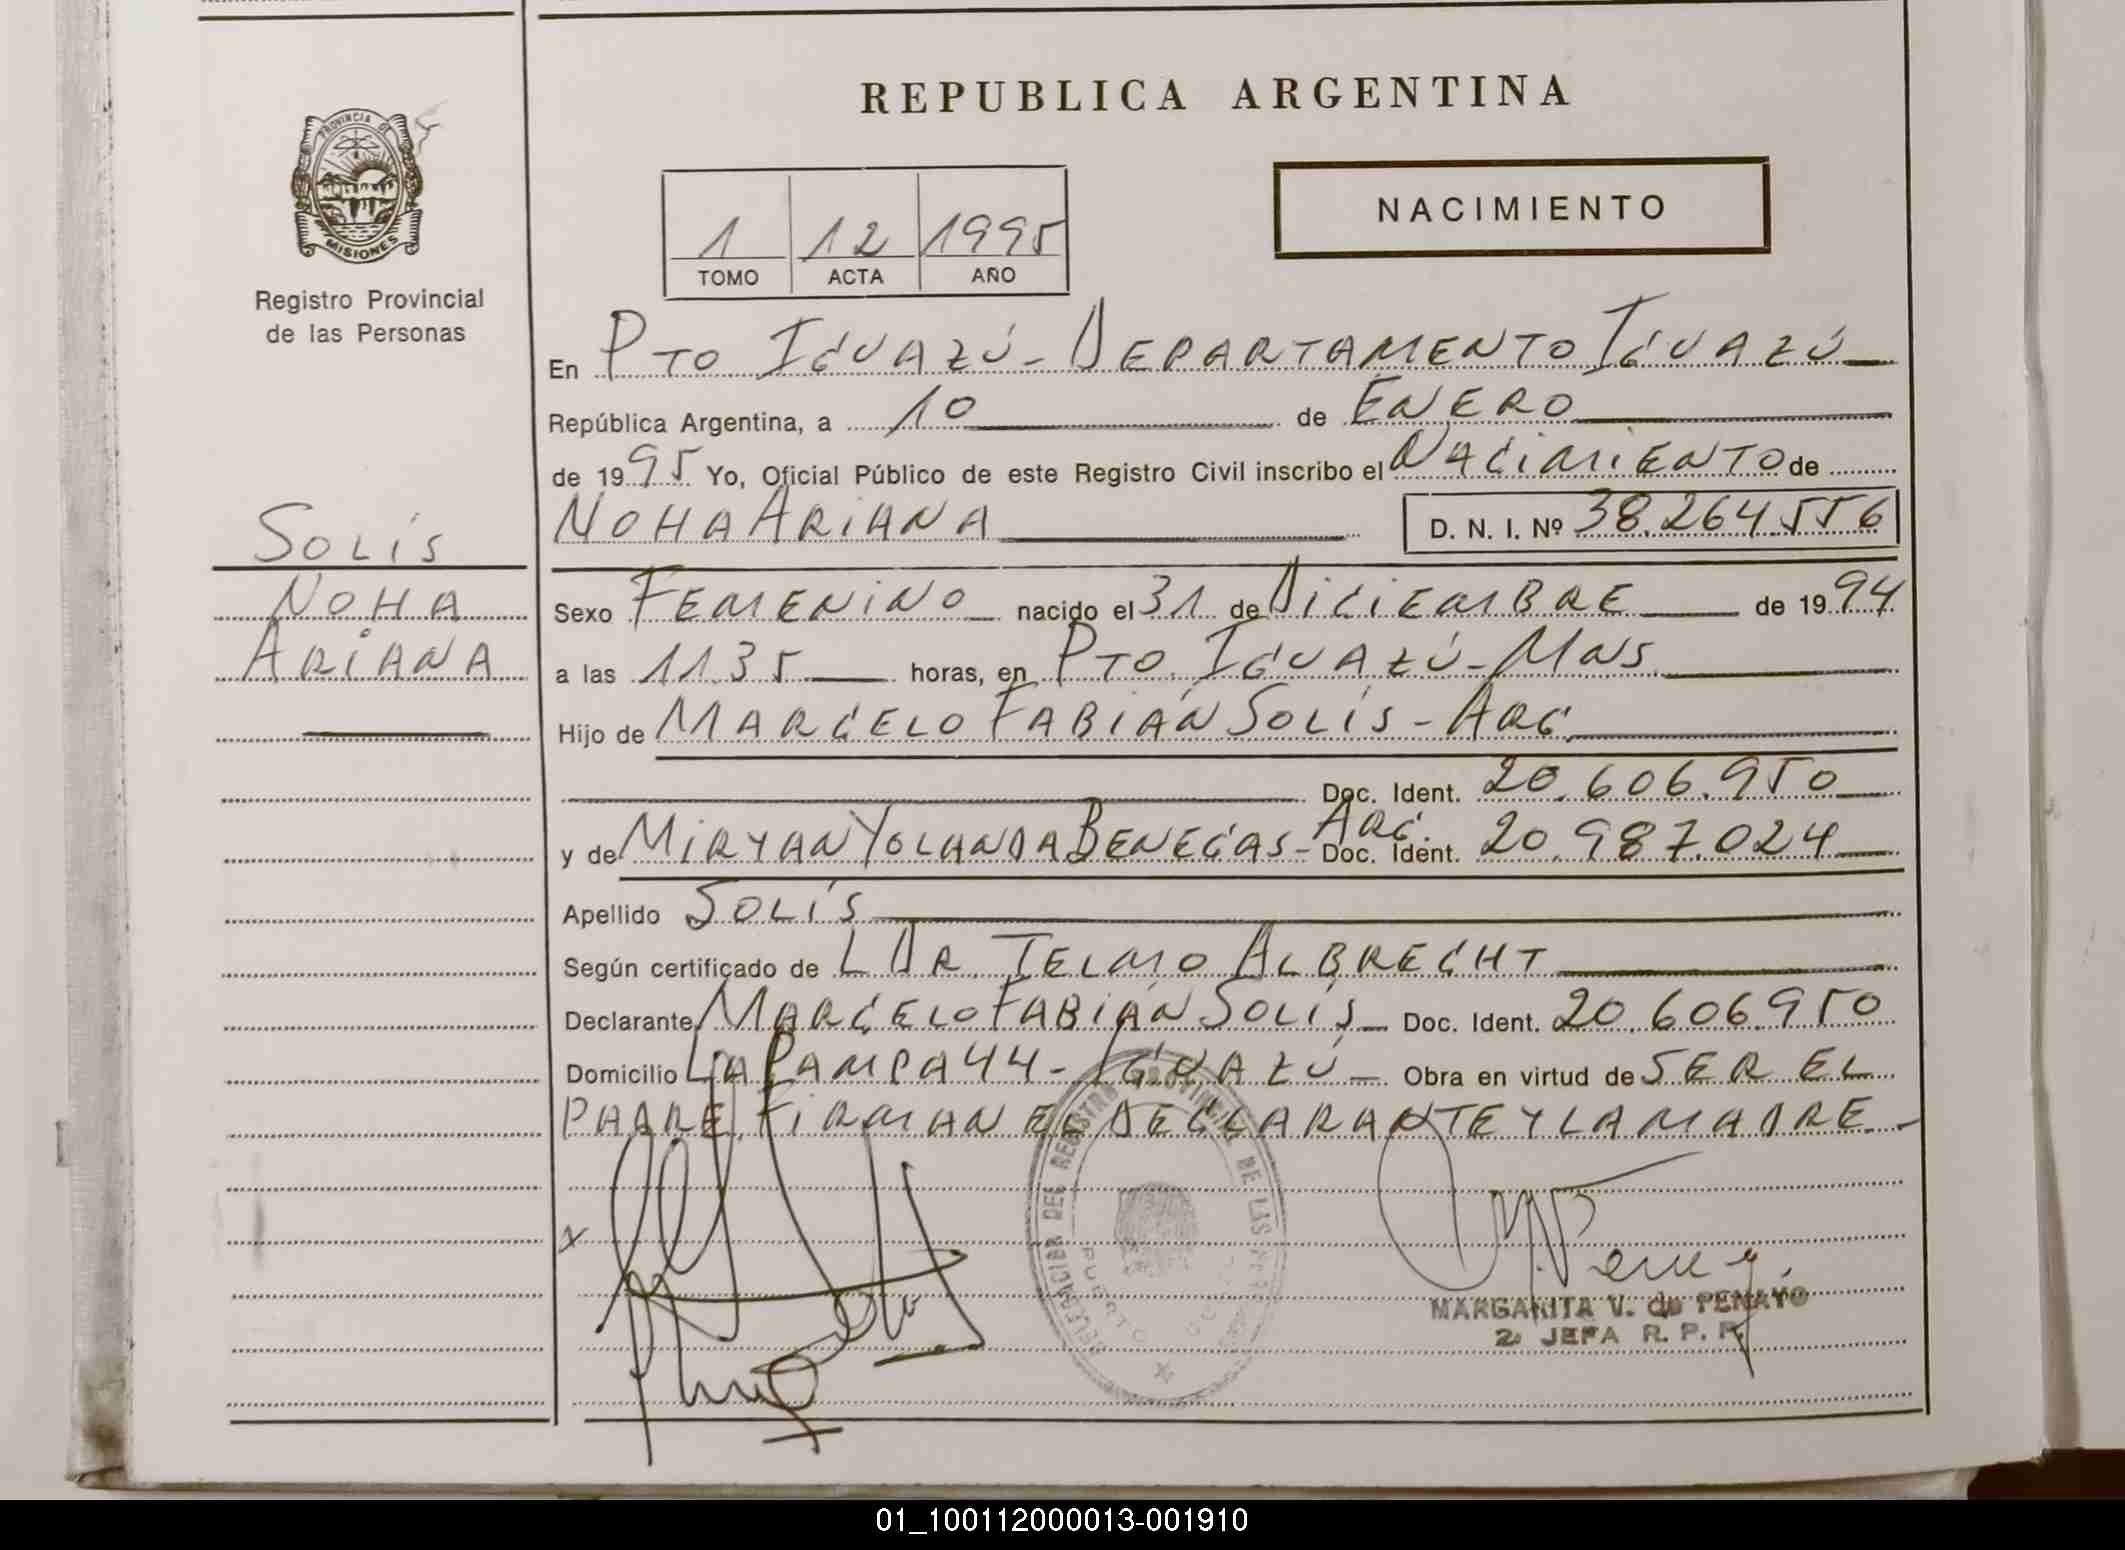 REPUBLICA ARGENTINA
PROVINCIA DE
MISIONES
Registro Provincial
de las Personas
NACIMIENTO
1 12 1995
TOMO ACTA AÑO
En PTO IGUAZÚ - DEPARTAMENTO IGUAZÚ
República Argentina, a 10 de ENERO
de 1995 Yo, Oficial Público de este Registro Civil inscribo el NACIMIENTO de
NOHA ARIANA D. N. I. Nº 38.264.556
SOLÍS
NOHA
ARIANA
Sexo FEMENINO nacido el 31 de DICIEMBRE de 1994
a las 11.35 horas, en PTO. IGUAZÚ - MNS.
Hijo de MARCELO FABIÁN SOLÍS - ARG.
Doc. Ident. 20.606.950
y de MIRYAN YOLANDA BENEGAS - ARG. Doc. Ident. 20.987.024
Apellido SOLÍS
Según certificado de L DR. TELMO ALBRECHT
Declarante MARCELO FABIÁN SOLÍS Doc. Ident. 20.606.950
Domicilio LA PAMPA 44 - IGUAZÚ Obra en virtud de SER EL
PADRE, FIRMAN EL DECLARANTE Y LA MADRE.-
DELEGACION DEL REGISTRO PROVINCIAL DE LAS
PUERTO
MARGARITA V. de PENAYO
2º JEFA R. P. P.
01_100112000013-001910